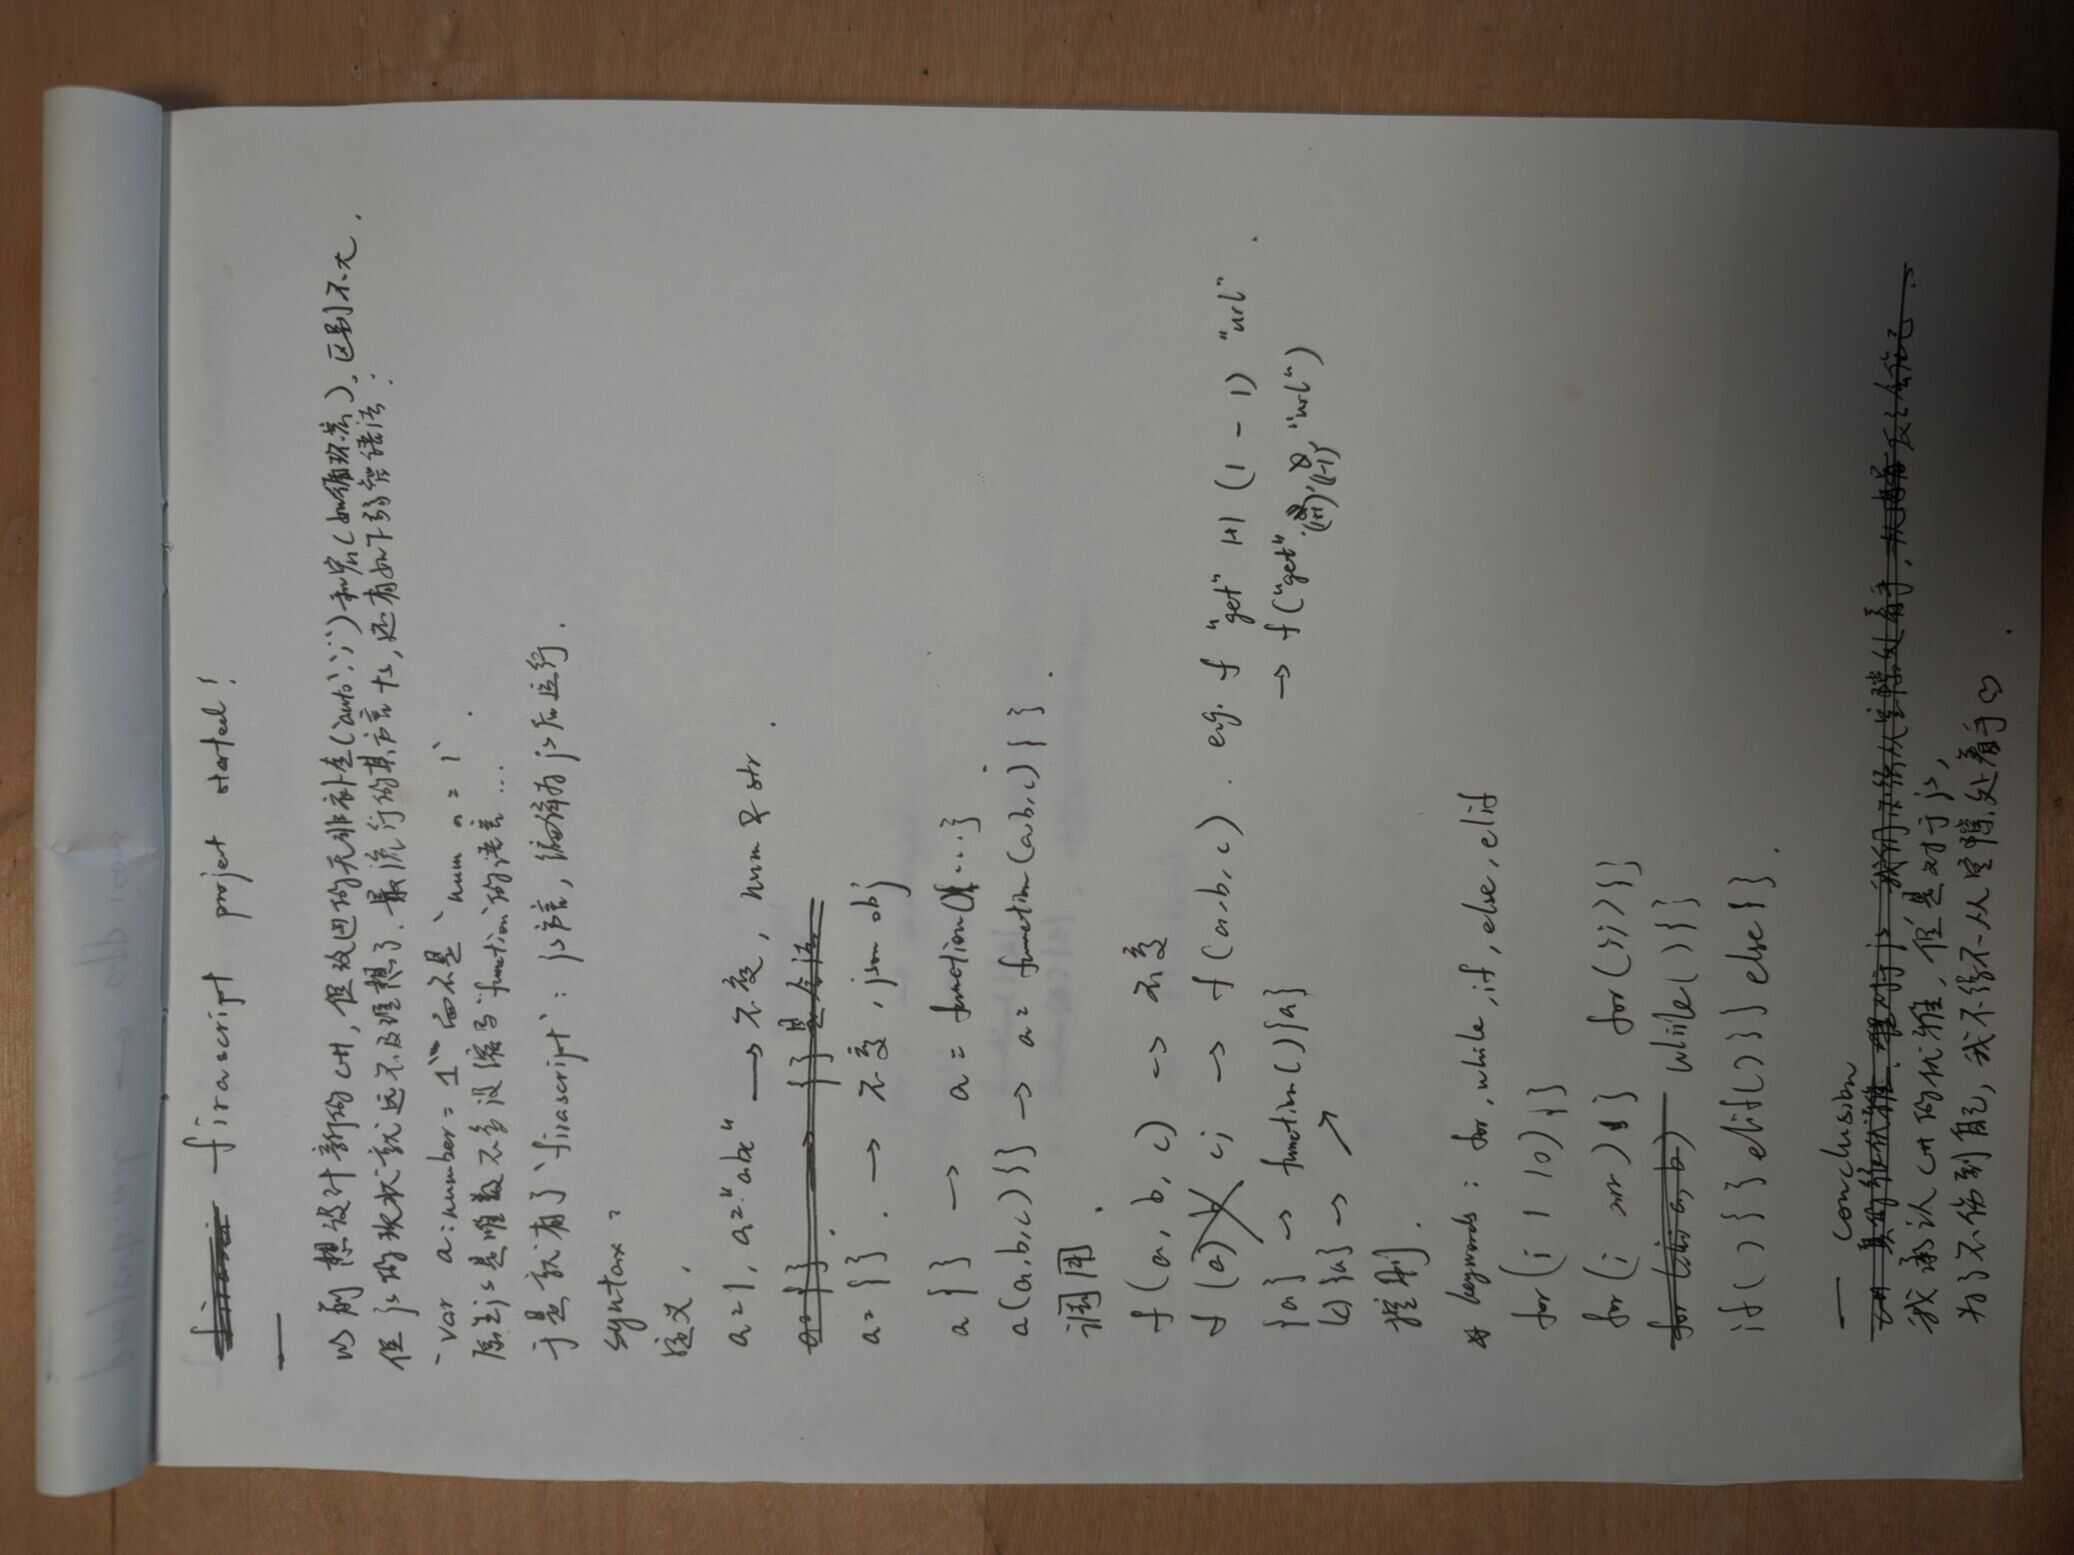 firascript project started!
—
以前想设计新的c++, 但改进的无非补全(`auto`, `;`)和宏(如循环宏), 区别不大.
但js的现状就远不及理想了. 最流行的其方言ts, 还有如下弱智语法:
`var a:number = 1` 而不是 `num a = 1`.
原生js是唯数不多没缩写`function`的语言...
于是就有了`firascript`: js方言, 编译为js后运行.
syntax:
定义.
a=1, a="abc" → 不变, num & str.
a={}. → {}是合法
a={}. → 不变, json obj
a{} → a = function(){...}.
a(a,b,c){} → a = function(a,b,c){ }.
调用.
f(a, b, c) → 不变
f (a) b c; → f(a,b,c). e.g. f "get" 1+1 (1 - 1) "url".
→ f("get", (1+1), (1-1), "url")
{a} → function(){a}
(c){a} → ↗
控制.
* keywords: for, while, if, else, elif
for(i 1 10){}
for(i arr){} for(;;){}
while(){}
if(){}elif(){}else{}.
— conclusion
c++ 真的很优雅. 对于js, 我们必须从空隙处着手,
我承认c++的优雅, 但是对于js,
为了不伤到自己, 我不得不从空隙处着手♡.